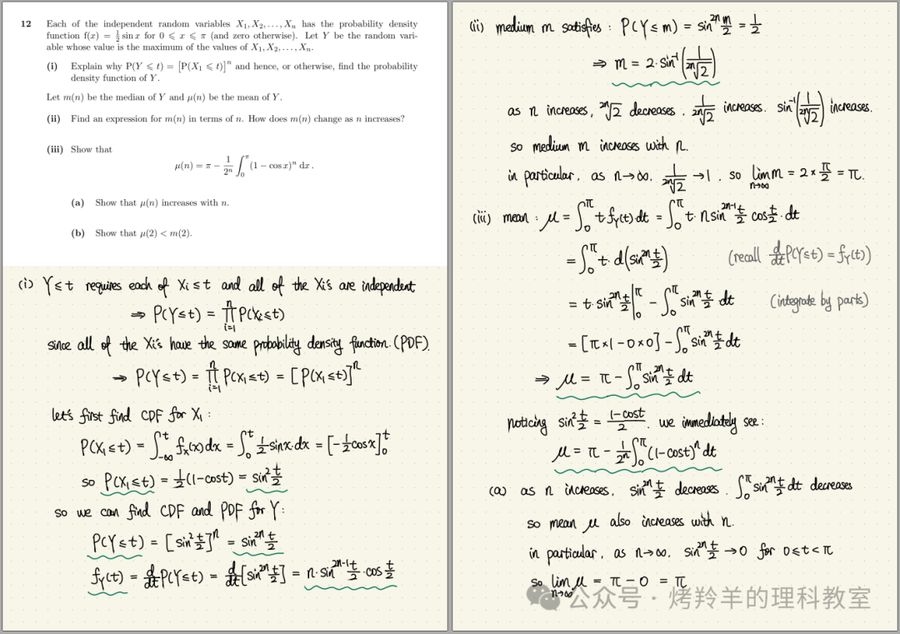 12 Each of the independent random variables X₁, X₂, . . . , Xₙ has the probability density
function f(x) = ½ sin x for 0 ⩽ x ⩽ π (and zero otherwise). Let Y be the random vari-
able whose value is the maximum of the values of X₁, X₂, . . . , Xₙ.
(i) Explain why P(Y ⩽ t) = [P(X₁ ⩽ t)]ⁿ and hence, or otherwise, find the probability
density function of Y.
Let m(n) be the median of Y and μ(n) be the mean of Y.
(ii) Find an expression for m(n) in terms of n. How does m(n) change as n increases?
(iii) Show that
μ(n) = π − 1/2ⁿ ∫₀^π (1 − cos x)ⁿ dx .
(a) Show that μ(n) increases with n.
(b) Show that μ(2) < m(2).
(i) Y ⩽ t requires each of Xᵢ ⩽ t and all of the Xᵢ's are independent
⇒ P(Y⩽t) = ∏ᵢ₌₁ⁿ P(Xᵢ⩽t)
since all of the Xᵢ's have the same probability density function (PDF).
⇒ P(Y⩽t) = ∏ᵢ₌₁ⁿ P(X₁⩽t) = [P(X₁⩽t)]ⁿ
let's first find CDF for X₁ :
P(X₁⩽t) = ∫₋∞^t fₓ(x)dx = ∫₀^t ½ sinx·dx = [-½cosx]₀^t
so P(X₁⩽t) = ½(1-cost) = sin² t/2
so we can find CDF and PDF for Y :
P(Y⩽t) = [sin² t/2]ⁿ = sin²ⁿ t/2
f_Y(t) = d/dt P(Y⩽t) = d/dt [sin²ⁿ t/2] = n·sin²ⁿ⁻¹ t/2 · cos t/2
(ii) medium m satisfies : P(Y⩽m) = sin²ⁿ m/2 = 1/2
⇒ m = 2·sin⁻¹(1/²ⁿ√2)
as n increases, ²ⁿ√2 decreases. 1/²ⁿ√2 increases. sin⁻¹(1/²ⁿ√2) increases.
so medium m increases with n.
in particular, as n→∞. 1/²ⁿ√2 →1. so lim n→∞ m = 2×π/2 = π.
(iii) mean : μ = ∫₀^π t f_Y(t)dt = ∫₀^π t· n sin²ⁿ⁻¹ t/2 cos t/2 ·dt
= ∫₀^π t· d(sin²ⁿ t/2) (recall d/dt P(Y⩽t) = f_Y(t))
= t·sin²ⁿ t/2 |₀^π − ∫₀^π sin²ⁿ t/2 dt (integrate by parts)
= [π×1−0×0] − ∫₀^π sin²ⁿ t/2 dt
⇒ μ = π − ∫₀^π sin²ⁿ t/2 dt
noticing sin² t/2 = (1-cost)/2. we immediately see :
μ = π − 1/2ⁿ ∫₀^π (1-cost)ⁿ dt
(a) as n increases, sin²ⁿ t/2 decreases. ∫₀^π sin²ⁿ t/2 dt decreases
so mean μ also increases with n.
in particular, as n→∞, sin²ⁿ t/2 → 0 for 0⩽t<π
so lim n→∞ μ = π − 0 = π
公众号 · 烤羚羊的理科教室